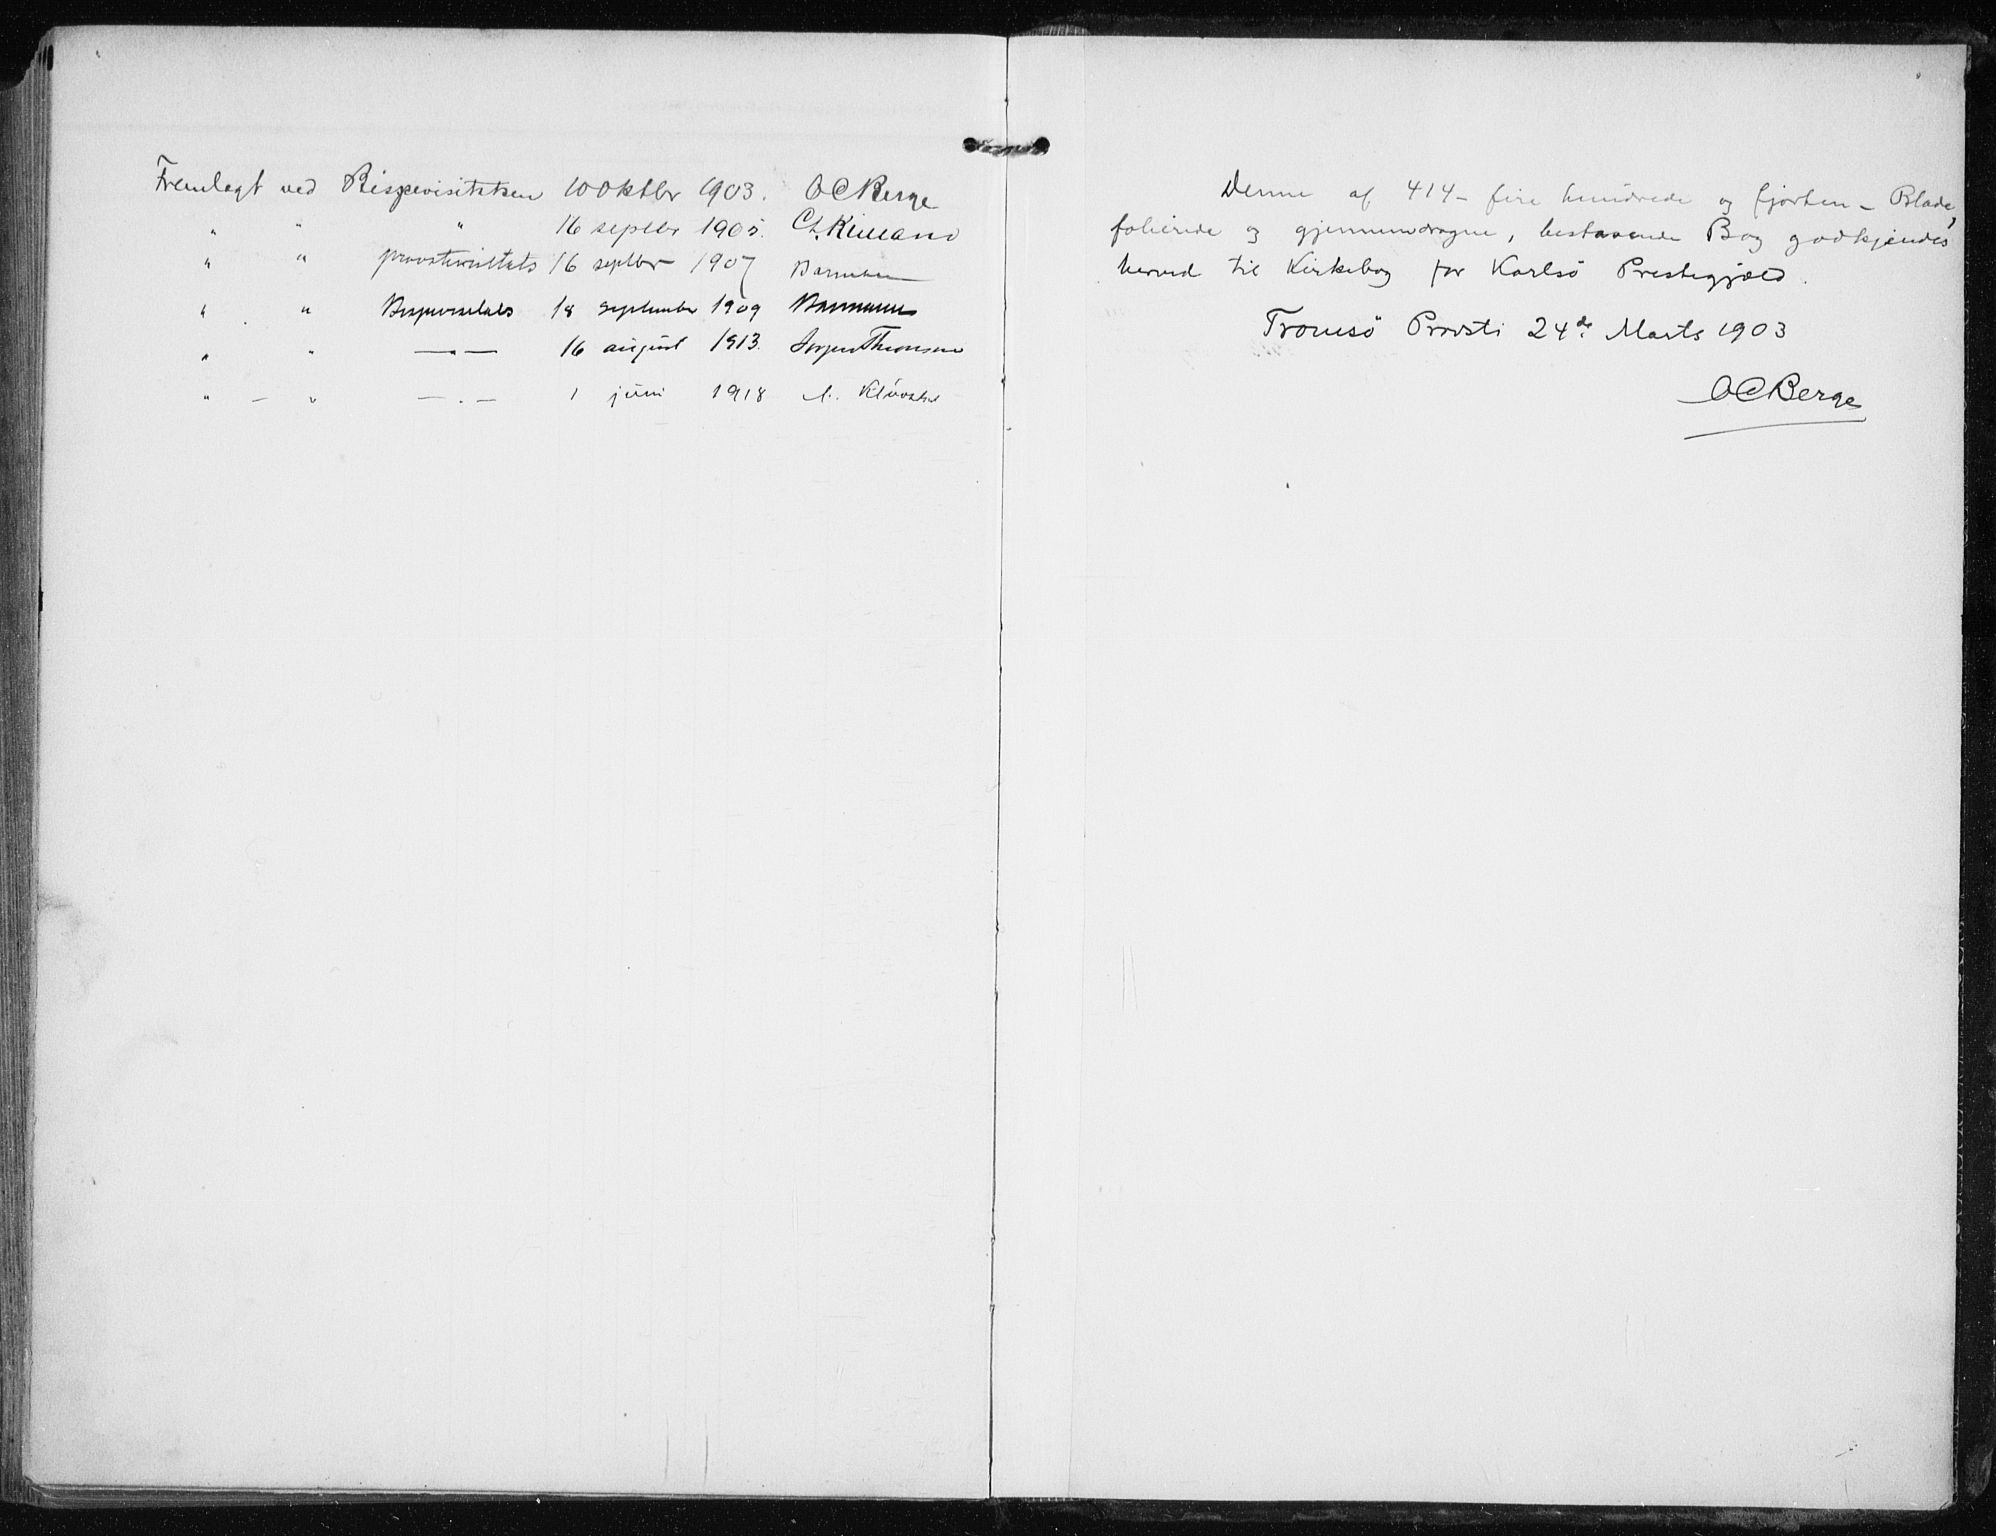 Fremlagt ved Bispevisitatsen 10 Oktbr 1903. OCBerge
" " " 16 septbr 1905. Chr. Kielland
" " provstevisitats 16 septbr 1907
" " Bispevisitats 18 september 1909
" " —"— 16 august 1913.
" — " —"— 1 juni 1918
Denne af 414 – fire hundrede og fjorten – Blade,
folierede og gjennemdragne, bestaaende Bog godkjendes
herved til Kirkebog for Karlsö Prestegjæld.
Tromsö Provsti 24de Marts 1903
OCBerge